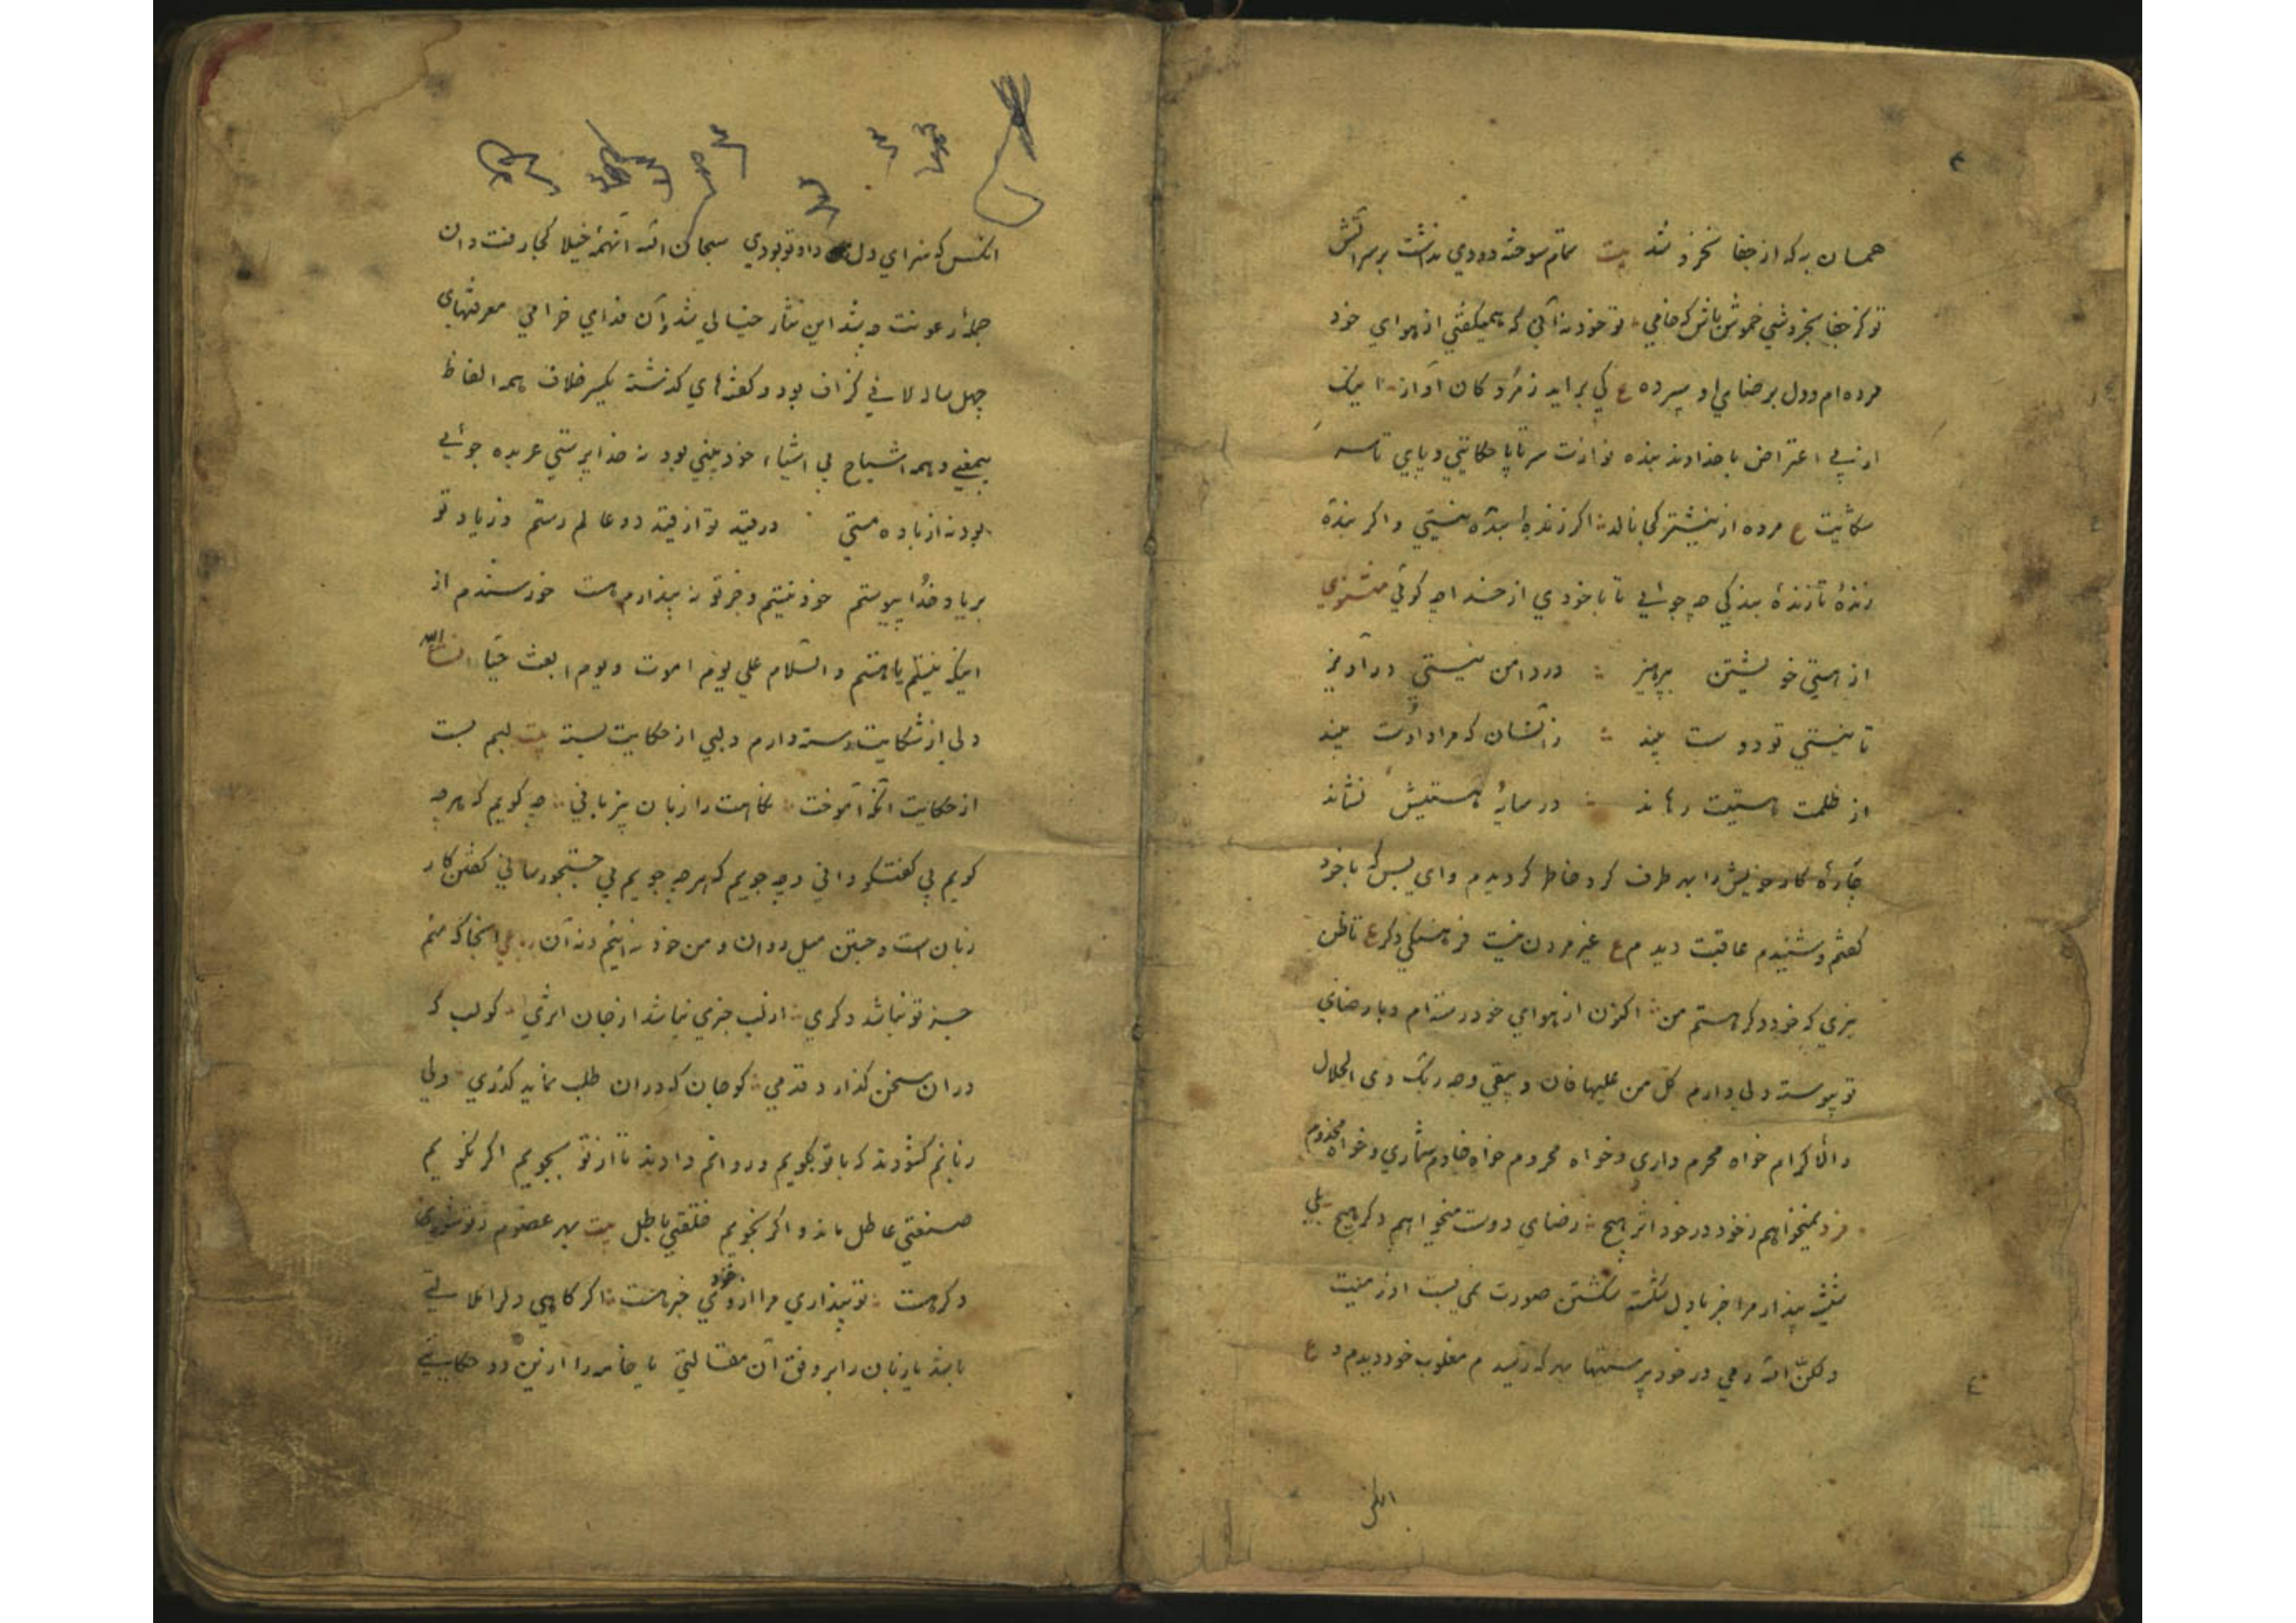 همان به که از جفا نخروشد بیت تمام سوخته دودی نداشت بر سر آتش
تو کز جفا بخروشی خموش باش که خامی تو خود نه آنی که همیگفتی از هوای خود
مرده‌ام و دل بر رضای او سپرده ع کی براید ز مردکان آواز اینک
از پی اعتراض با خداوند بنده نوازت سر تا پا حکایتی و پای تا سر
شکایت ع مرده از نیشتر کجا نالد اکر زندهٔ بنده نیستی و اکر بندهٔ
زندهٔ تا زندهٔ بندکی چه جوئی تا با خودی از خدا چه کوئی مثنوی
از هستی خویشتن بپرهیز در دامن نیستی در آویز
تا نیستی تو دوست بیند زانسان که مراد اوست بیند
از ظلمت هستیت رهاند در سایهٔ هستیش نشاند
چارهٔ کار خویش را بهر طرف کرد خاطر کردیدم و ای بس که با خود
کفتم و شنیدم عاقبت دیدم ع غیر مردن نیست فرهنکی دکر ع تا ظن
نبری که خود دکر هستم من اکنون از هوای خود رسته‌ام و با رضای
تو پیوسته ولی دارم کل من علیها فان و یبقی وجه ربک ذی الجلال
والاکرام خواه محرم داری و خواه محروم خواه خادم شماری و خواه مخدوم
فرد نمیخواهم ز خود در خود اثر هیچ رضای دوست میخواهم دکر هیچ بلی
پندار مرا جز با دل شکسته شکستن صورت نمی بست ازر منیت
ولکن الله رمی در خود پرستیها بهر که رسیدم مغلوب خود دیدم و ع
انکس که سزای دل داد تو بودی سبحان الله آنهمه خیلا کجا رفت و ان
جلهٔ رعونت چه شد این نثار خیالی شد و آن فدای خرامی معرفتهای
چهل ساله لافی کزاف بود و کفته‌های کذشته یکسر خلاف همه الفاظ
بیمعنی و همه اشباح بی اشیاء خود بینی بود نه خدا پرستی عربده جوئی
بود نه از باده مستی در قید تو از قید دو عالم رستم وز یاد تو
بر یاد خدا پیوستم خود نیستم و جز تو نپندارم هست خورسندم از
اینکه نیستم یا هستم و السلام علی یوم اموت و یوم ابعث حیا انشاالله
دلی از شکایت رسته دارم و لبی از حکایت بسته بیت لبم بست
از حکایت آنکه آموخت نکاهت را زبان بیزبانی چه کویم که هر چه
کویم بی کفتکو دانی و چه جویم که هر چه جویم بی جستجو رسانی کفتن کار
زبان است و جستن میل روان و من خود نه اینم و نه آن رباعی انجا که منم
جز تو نباشد دکری از لب جزی نباشد از جان اثری کو لب که
در ان سخن کذارد قدمی کو جان که در ان طلب نماید کذری ولی
زبانم کشودند که با تو بکویم و روانم دادند تا از تو بجویم اکر نکویم
صنعتی عاطل ماند و اکر نجویم خلقتی باطل بیت بهر عضوم ز تو شوری
دکر هست تو پنداری مرا از خود خبر هست اکر کاهی دلرا ملالتی
باشد یا زبان را بر وفق آن مقالتی یا خامه را از این دو حکایتی